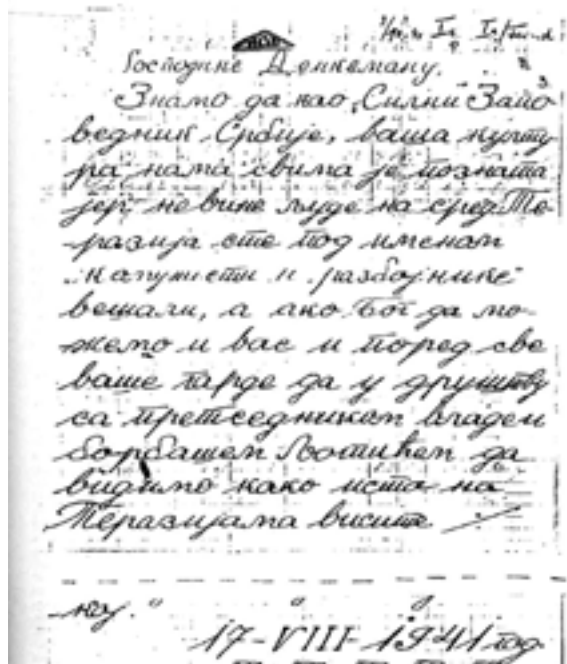 Господине Денкеману.
Знамо да као „Силни Запо
ведник Србије, ваша култу
ра, нама свима је позната
јер, невине људе на сред Те-
разија сте под именом
„капунисти и разбојнике"
вешали, а ако Бог да мо-
жемо и вас и поред све
ваше гарде да у друштву
са претседником владем
борбашем Љотићем да
видимо како исто на
Теразијама висите
17-VIII-1941 год.